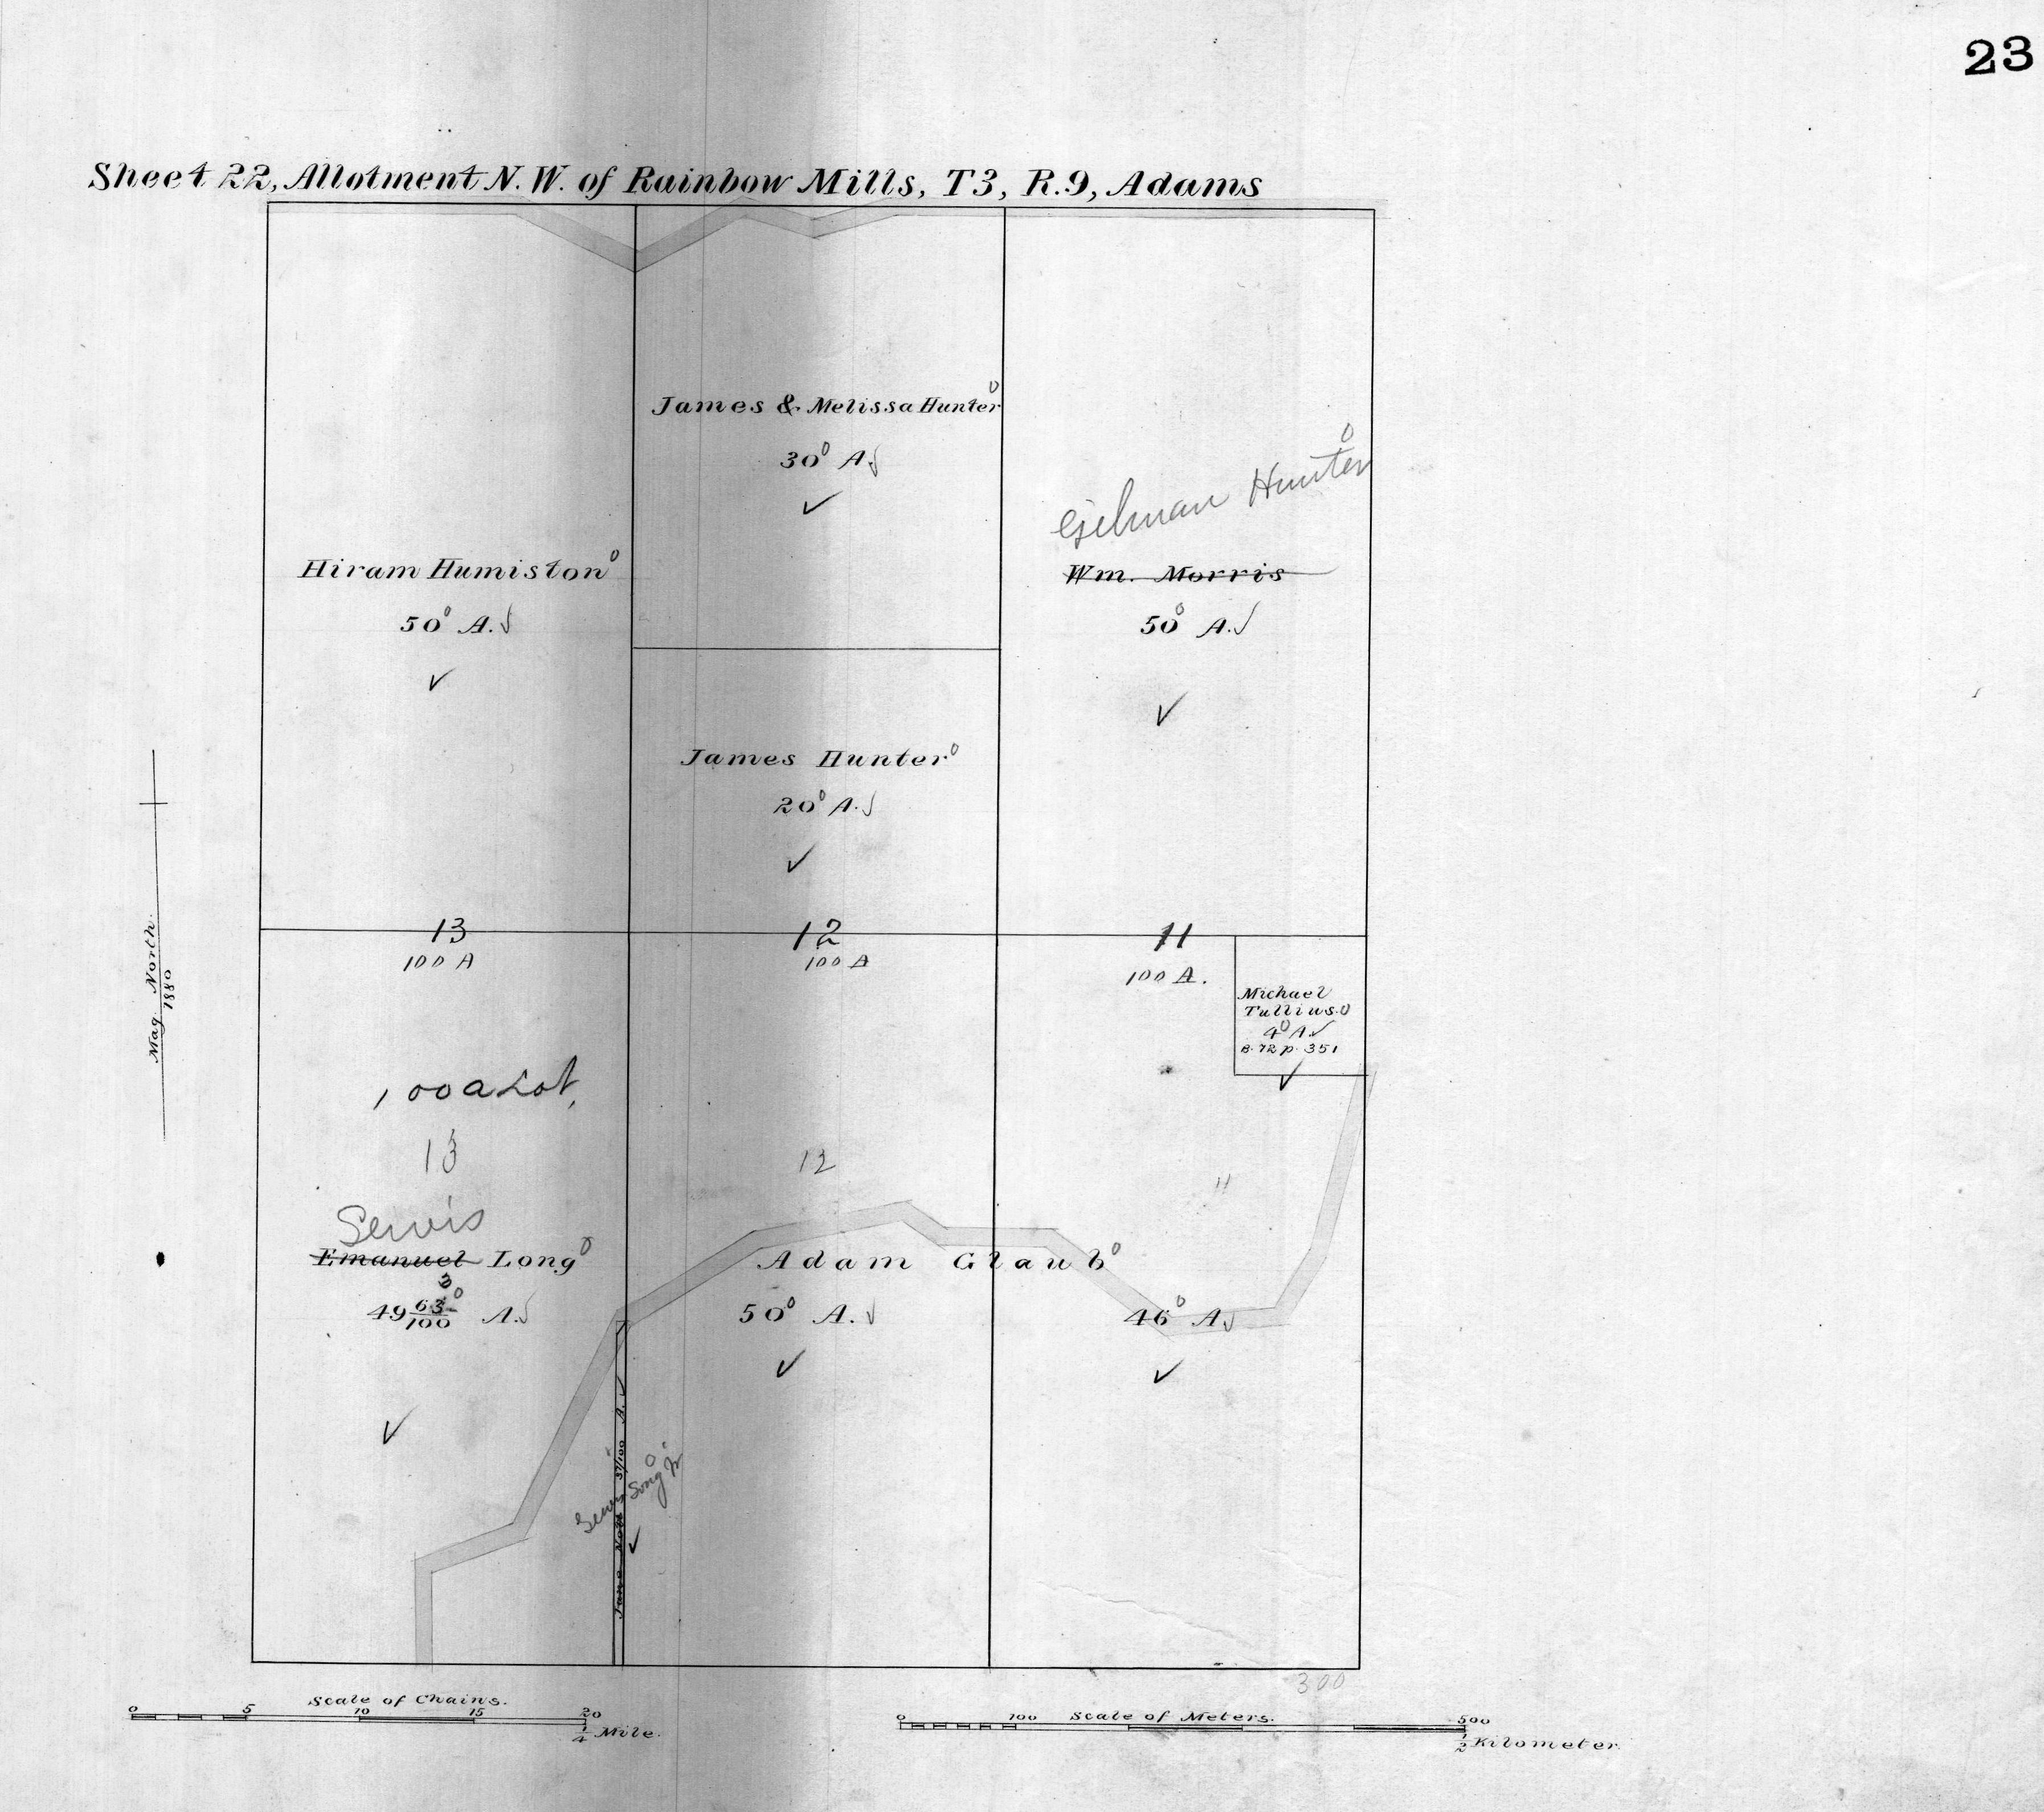 23
Sheet 22, Allotment N. W. of Rainbow Mills, T3, R.9, Adams
James & Melissa Hunter
30 A.
Gilman Hunter
Wm. Morris
50 A.
Hiram Humiston
50 A.
James Hunter
20 A.
13
100 A
12
100 A
11
100 A.
Michael
Tullius.
4 A.
B. 72 p. 351
Mag. North.
1880
100 a Lot,
13
12
11
Emanuel Long
3
49 63/100 A.
Adam Glaub
50 A.
46 A.
Jane Nott 37/100 A.
300
Scale of Chains.
0 5 10 15 20
1/4 Mile.
Scale of Meters.
0 100 500
1/2 Kilometer.